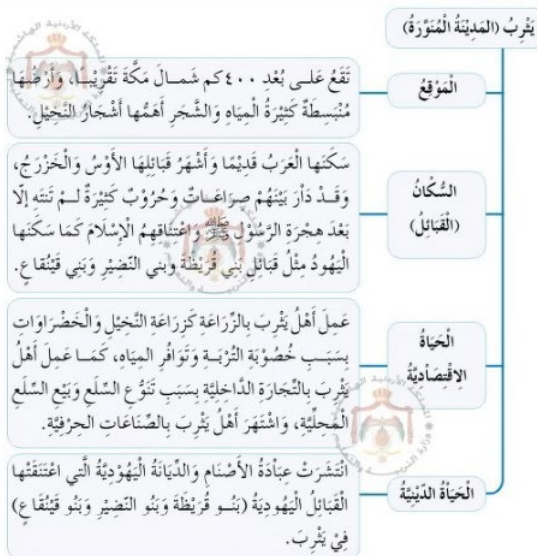 يَثْرِبُ (المَدِينَةُ الْمُنَوَّرَةُ)
الْمَوْقِعُ
تَقَعُ عَلى بُعْدِ ٤٠٠ كم شَمالَ مَكَّةَ تَقْرِيبًا، وَأَرْضُها
مُنْبَسِطَةٌ كَثِيرَةُ الْمِيَاهِ وَالشَّجَرِ أَهَمُّها أَشْجَارُ النَّخِيلِ.
السُّكَّانُ
(الْقَبَائِلُ)
سَكَنَها الْعَرَبُ قَدِيمًا وَأَشْهَرُ قَبائِلِها الأَوْسُ وَالْخَزْرَجُ،
وَقَدْ دَارَ بَيْنَهُمْ صِرَاعَاتٌ وَحُرُوْبٌ كَثِيْرَةٌ لَمْ تَنتَهِ إلّا
بَعْدَ هِجْرَةِ الرَّسُوْلِ ﷺ وَاعْتِنَاقِهِمُ الْإِسْلَامَ كَمَا سَكَنَها
الْيَهُودُ مِثْلُ قَبَائِلِ بَنِي قُرَيْظَةَ وَبني النَّضِيْرِ وَبَنِي قَيْنُقاعٍ.
الْحَيَاةُ
الِاقْتِصَادِيَّةُ
عَمِلَ أَهْلُ يَثْرِبَ بِالزِّرَاعَةِ كَزِرَاعَةِ النَّخِيْلِ وَالْخَضْرَاوَاتِ
بِسَبَبِ خُصُوْبَةِ التُّرْبَةِ وَتَوَافُرِ المِيَاهِ، كَمَا عَمِلَ أَهْلُ
يَثْرِبَ بِالتِّجَارَةِ الدَّاخِلِيَّةِ بِسَبَبِ تَنَوُّعِ السِّلَعِ وَبَيْعِ السِّلَعِ
الْمَحلِّيَّةِ، وَاشْتَهَرَ أَهْلُ يَثْرِبَ بِالصِّنَاعَاتِ الحِرْفِيَّةِ.
الْحَيَاةُ الدِّيْنِيَّةُ
انْتَشَرَتْ عِبَادَةُ الأَصْنَامِ وَالدِّيَانَةُ الْيَهُوْدِيَّةُ الَّتي اعْتَنَقَتْها
الْقَبَائِلُ الْيَهُودِيَةُ (بَنُو قُرَيْظَةَ وَبَنُو النَّضِيْرِ وَبَنُو قَيْنُقَاعٍ)
فِيْ يَثْرِبَ.